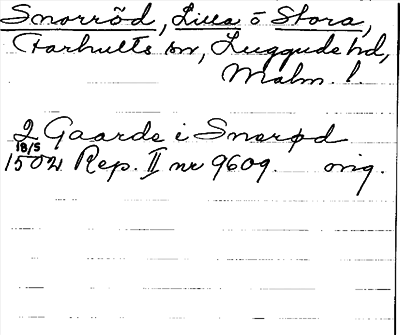 Snorröd, Lilla o Stora,
Farhults sn, Luggude hd,
Malm. l.
2 Gaarde i Snorød
18/5
1502 Rep. II nr 9609. orig.